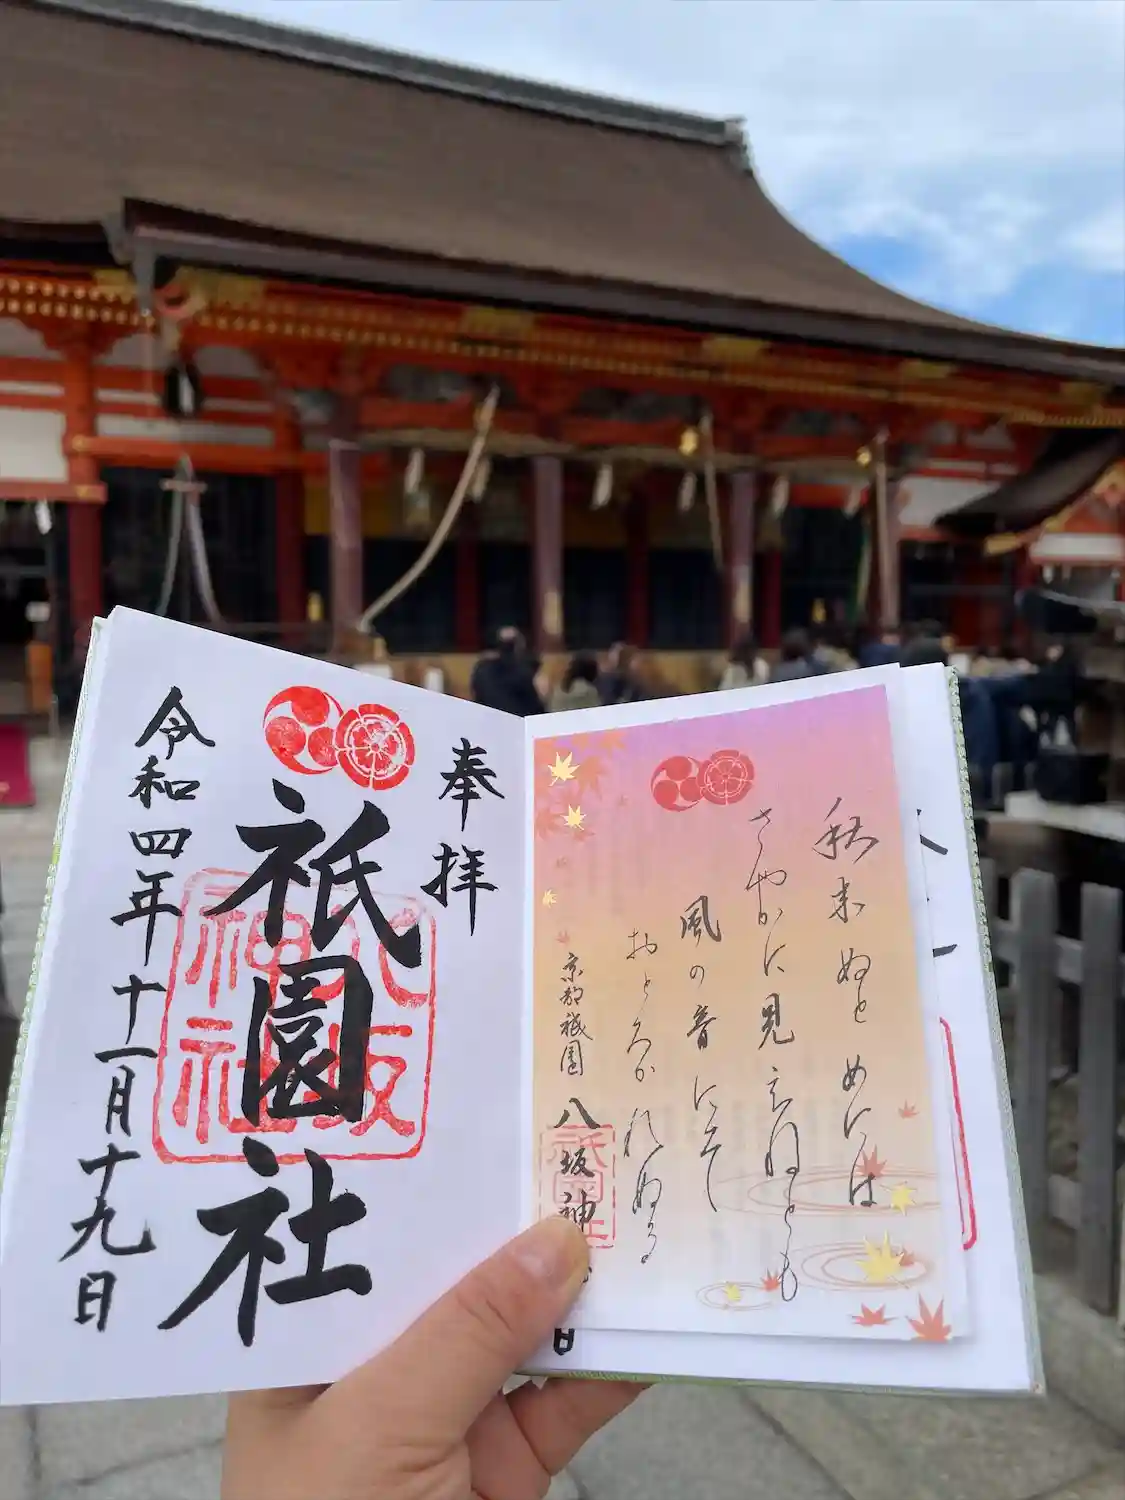 奉拝
祇園社
八坂神社
令和四年十一月十九日
秋来ぬと めには
さやかに見えねども
風の音にそ
おとろかれぬる
京都祇園 八坂神
日